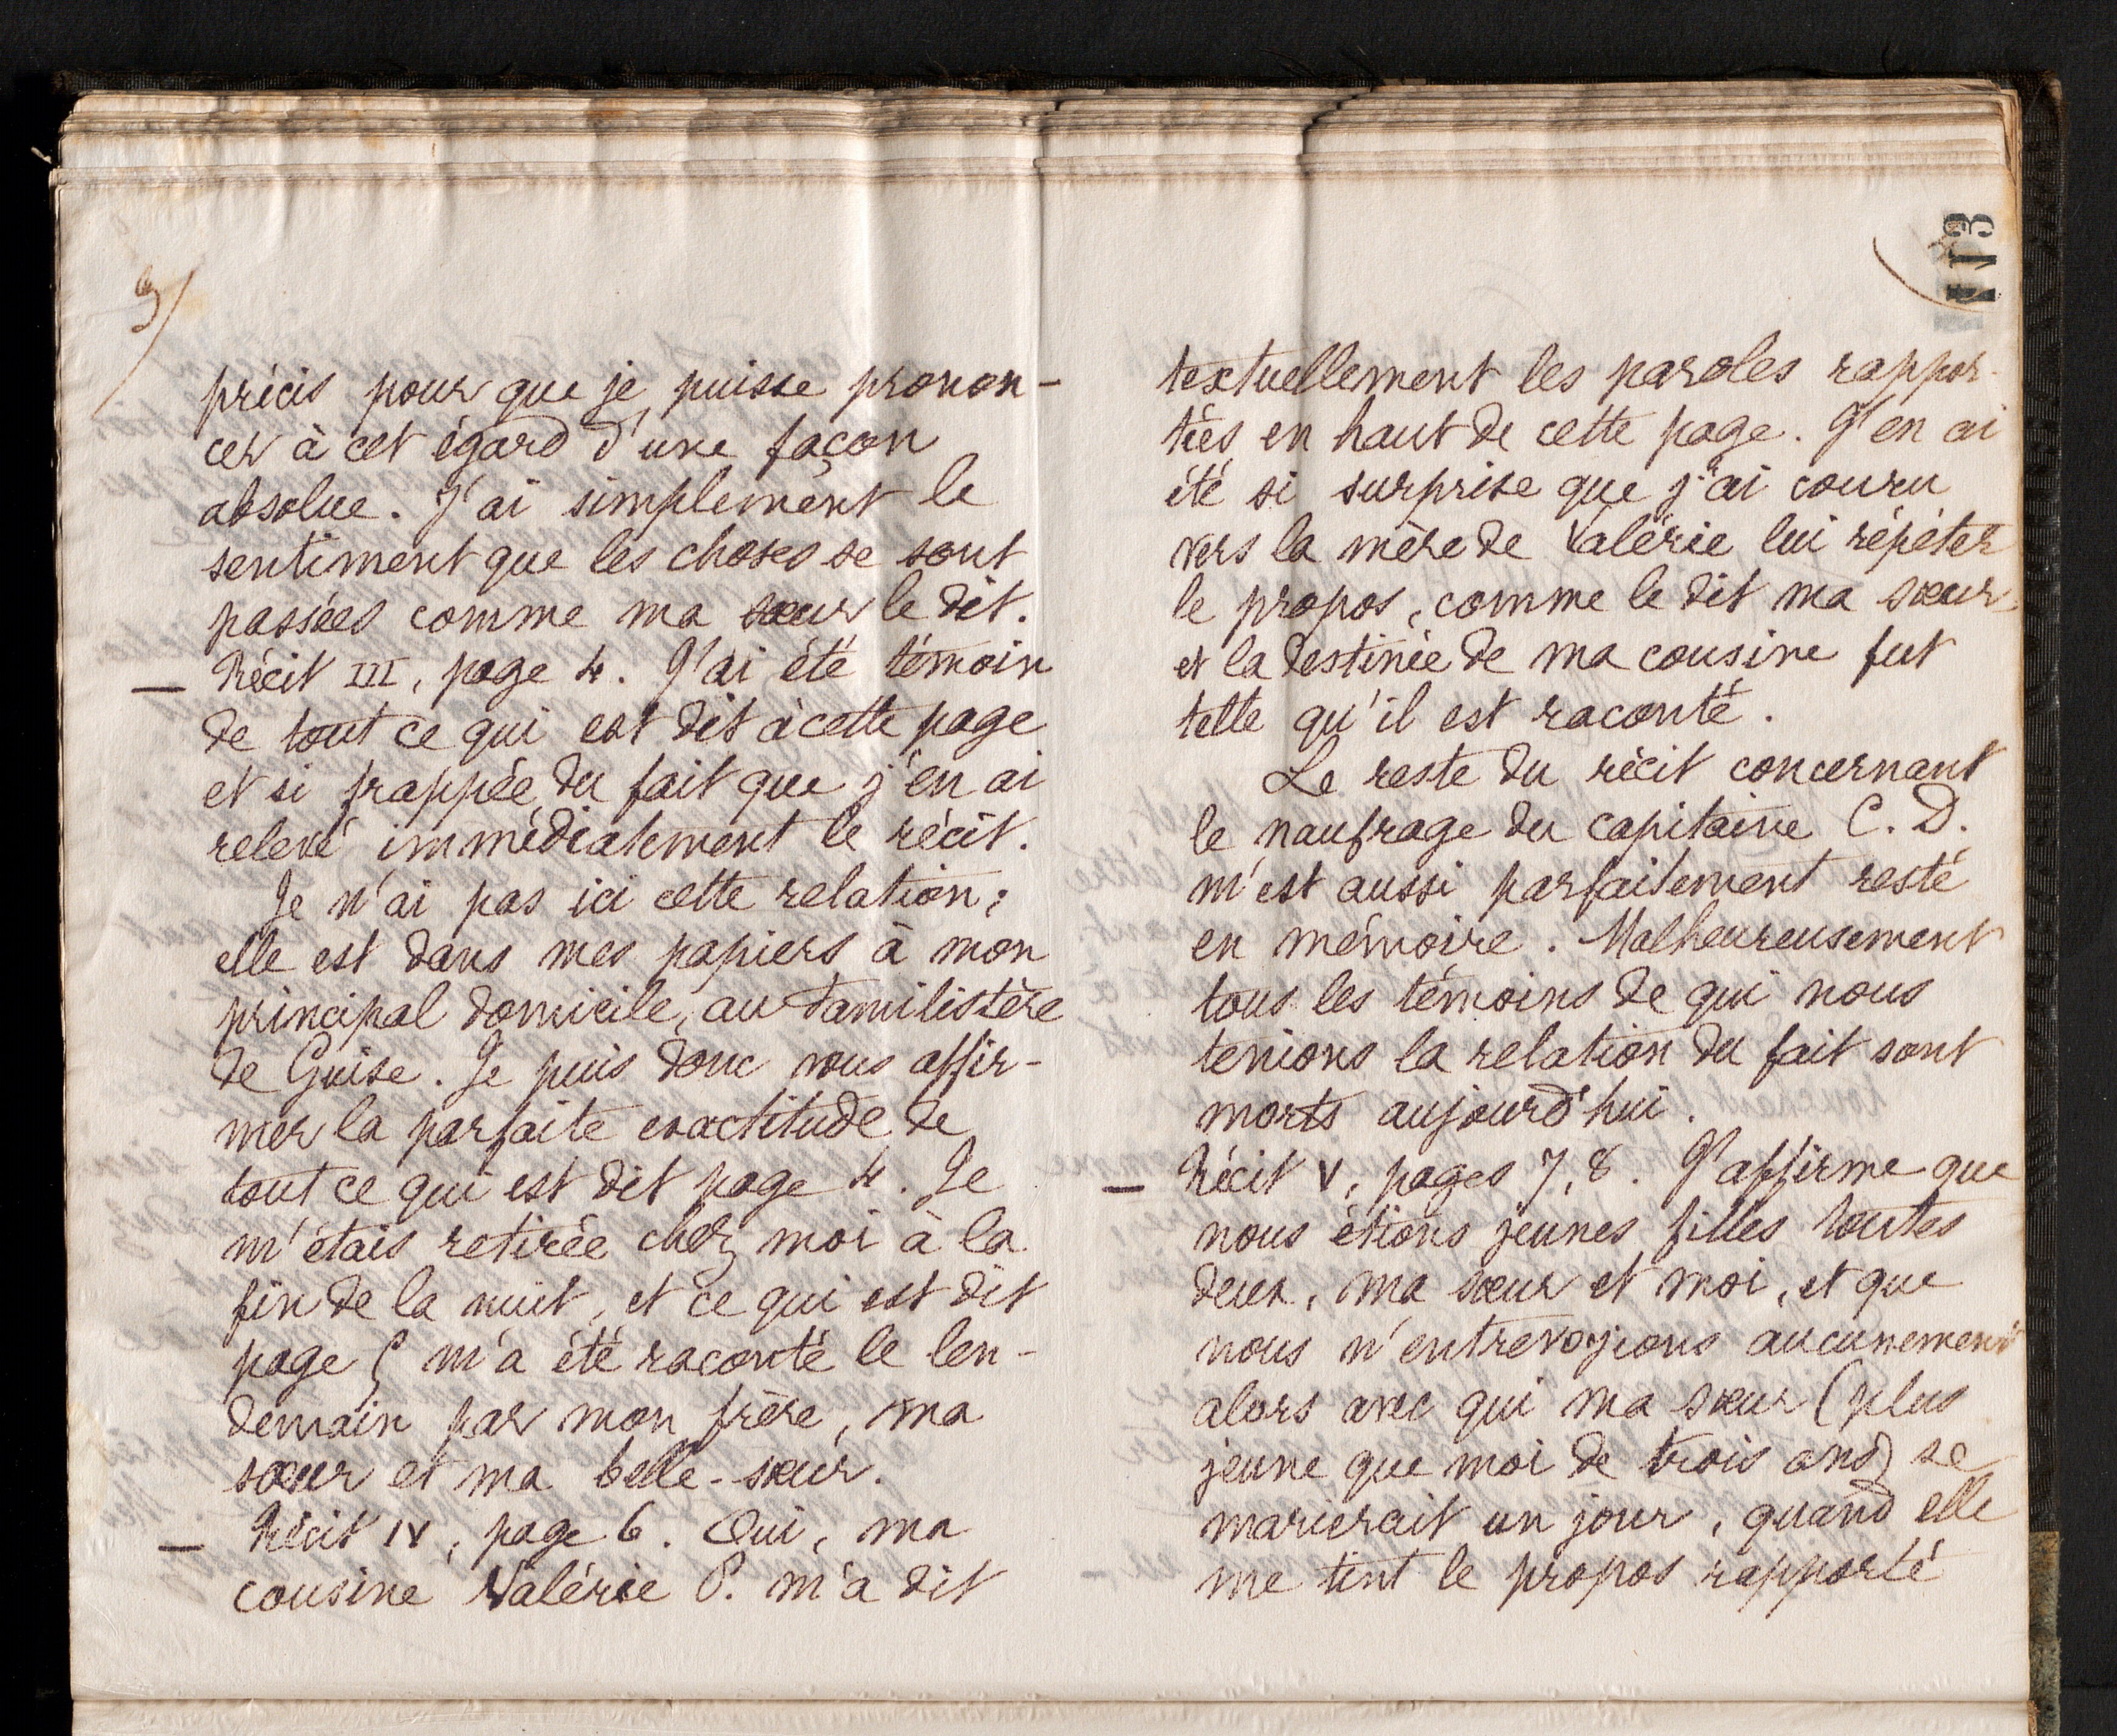 3/
précis pour que je puisse pronon-
cer à cet égard d'une façon
absolue. J'ai simplement le
sentiment que les choses se sont
passées comme ma sœur le dit.
— Récit III, page 4. J'ai été témoin
de tout ce qui est dit à cette page
et si frappée du fait que j'en ai
relevé immédiatement le récit.
Je n'ai pas ici cette relation;
elle est dans mes papiers à mon
principal domicile, au Familistère
de Guise. Je puis donc vous affir-
mer la parfaite exactitude de
tout ce qui est dit page 4. Je
m'étais retirée chez moi à la
fin de la nuit, et ce qui est dit
page 5 m'a été raconté le len-
demain par mon frère, ma
sœur et ma belle-sœur.
— Récit IV, page 6. Oui, ma
cousine Valérie P. m'a dit
113
textuellement les paroles rappor-
tées en haut de cette page. J'en ai
été si surprise que j'ai couru
vers la mère de Valérie lui répéter
le propos, comme le dit ma sœur,
et la destinée de ma cousine fut
telle qu'il est raconté.
Le reste du récit concernant
le naufrage du capitaine C. D.
m'est aussi parfaitement resté
en mémoire. Malheureusement
tous les témoins de qui nous
tenions la relation du fait sont
morts aujourd'hui.
— Récit V, pages 7, 8. J'affirme que
nous étions jeunes filles toutes
deux, ma sœur et moi, et que
nous n'entrevoyions aucunement
alors avec qui ma sœur (plus
jeune que moi de trois ans) se
marierait un jour, quand elle
me tint le propos rapporté